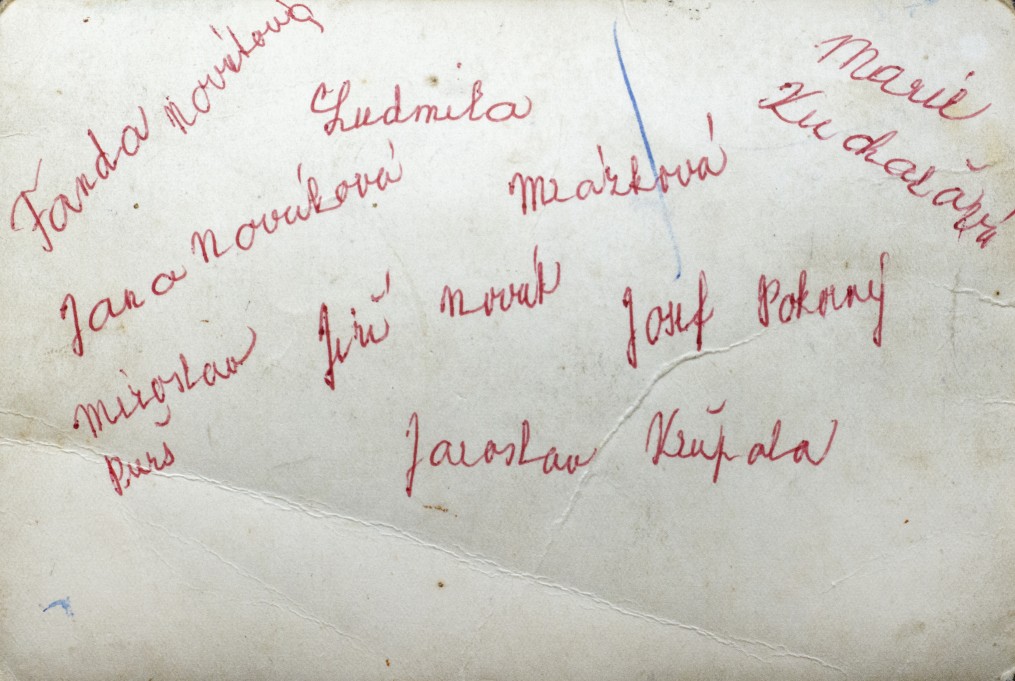 Fanda Nováková
Ludmila
Mrázková
Marie
Kuchařová
Jana Nováková
Jiří Novák
Josef Pokorný
Miroslav
Purš
Jaroslav Křúpala